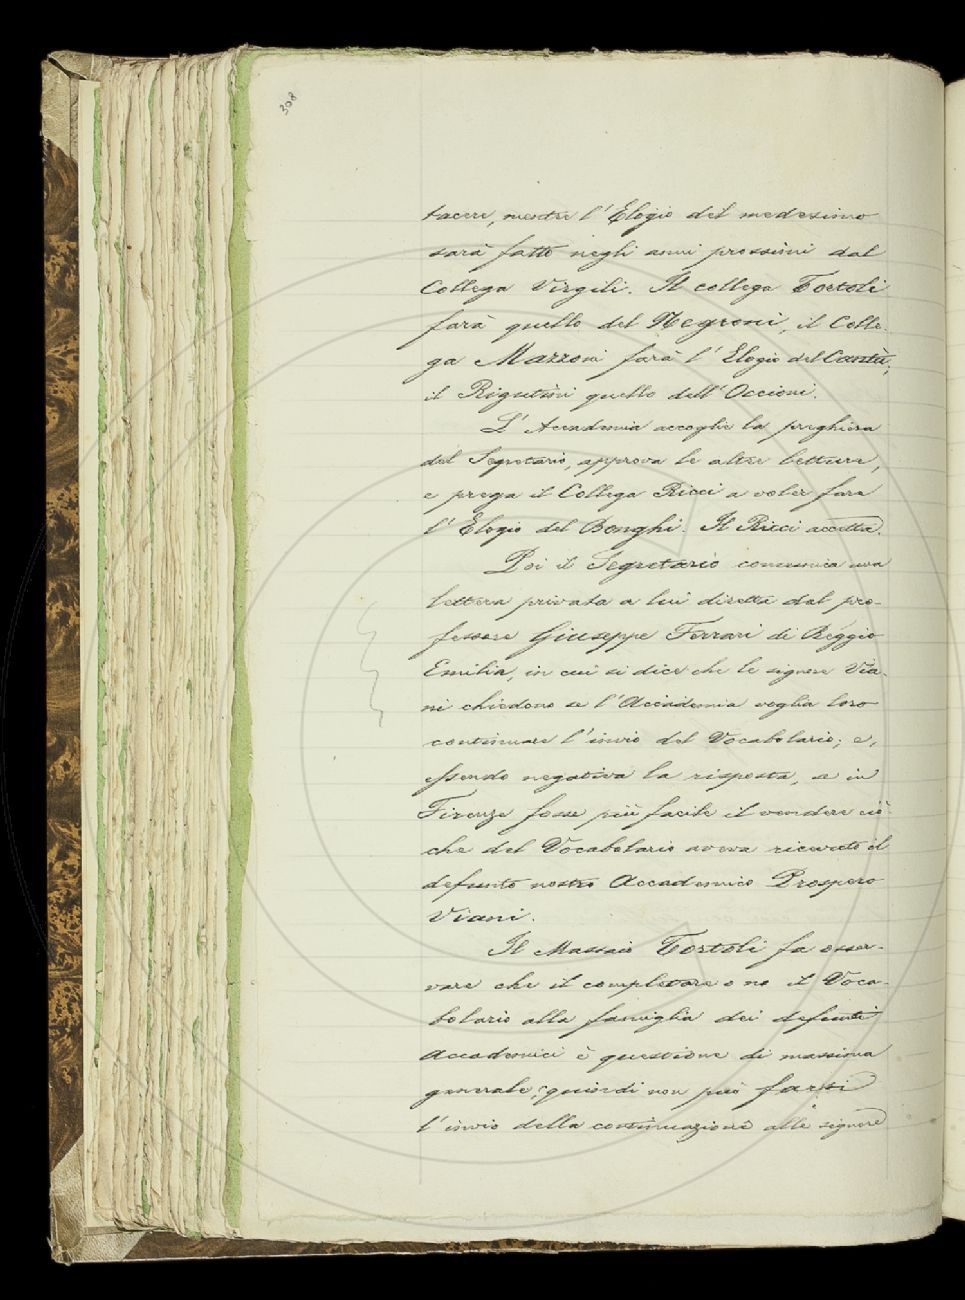 308
tacere, mentre l'Elogio del medesimo
sarà fatto negli anni prossimi dal
Collega Virgili. Il collega Tortoli
farà quello del Negroni, il Colle-
ga Mazzoni farà l'Elogio del Cantù;
il Rigutini quello dell'Occioni.
L'Accademia accoglie la preghiera
del Segretario, approva le altre letture,
e prega il Collega Ricci a voler fare
l'Elogio del Bonghi. Il Ricci accetta.
Poi il Segretario comunica una
lettera privata a lui diretta dal pro-
fessore Giuseppe Ferrari di Reggio
Emilia, in cui si dice che le signore Via-
ni chiedono se l'Accademia voglia loro
continuare l'invio del Vocabolario; e,
essendo negativa la risposta, se in
Firenze fosse più facile il vendere ciò
che del Vocabolario aveva ricevuto il
defunto nostro Accademico Prospero
Viani.
Il Massaio Tortoli fa osser-
vare che il completare o no il Voca-
bolario alla famiglia dei defunti
Accademici è questione di massima
generale; quindi non può farsi
l'invio della continuazione alle signore